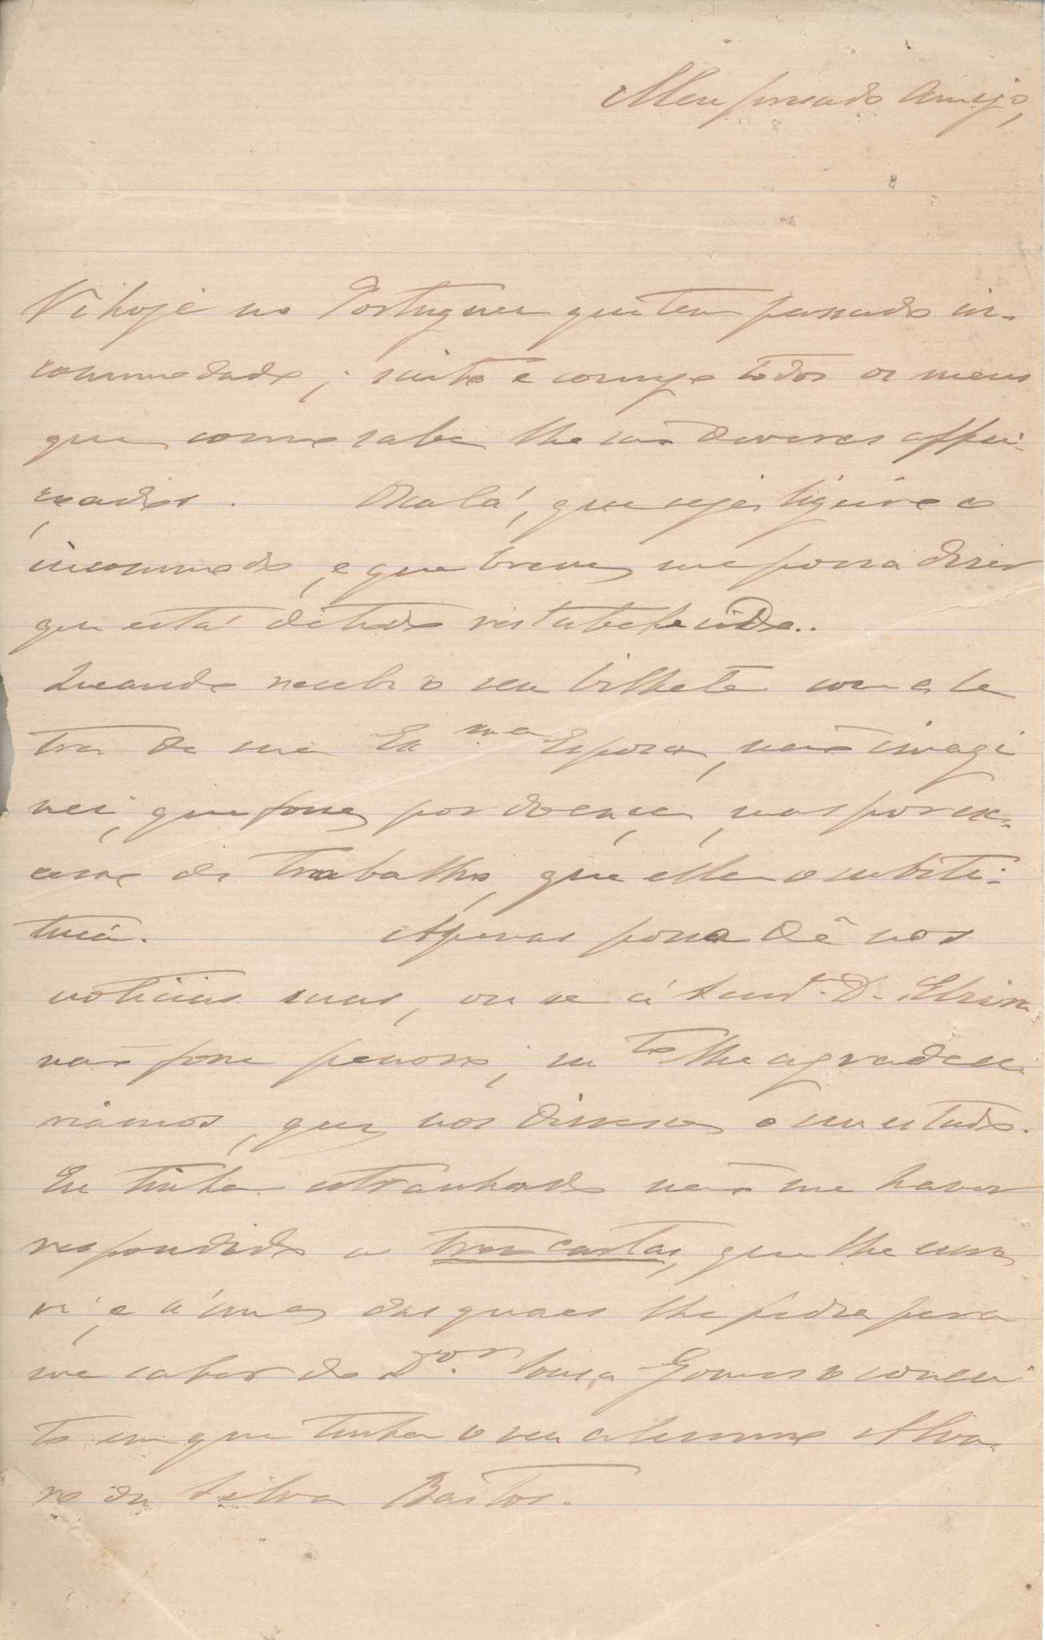 Meu presado Amigo,
Vi hoje no Portuguez que tem passado in-
commodado; sinto e commigo todos os meus
que como sabe lhe são deveras affei-
çoados. Oxalá, que seja ligeiro o
incommodo, e que breve me possa dizer
que está de todo restabelecido..
Quando recebi o seu bilhete com a le
tra de sua Exma Esposa, não imagi
nei, que fosse por doença, mas por ex-
cesso de trabalho, que ella o substi-
tuia. Apenas possa dê nos
noticias suas, ou se á Snr.ª D.
não fosse penoso, mto lhe agradece
riamos, que nos dissesse o seu estado.
Eu tinha estranhado não me haver
respondido a tres cartas, que lhe escre
vi, e n'uma das quaes lhe pedia para
me saber do Dor. Souza Gomes o concei
to em que tinha o seu alumno Alva-
ro da Silva Bastos.